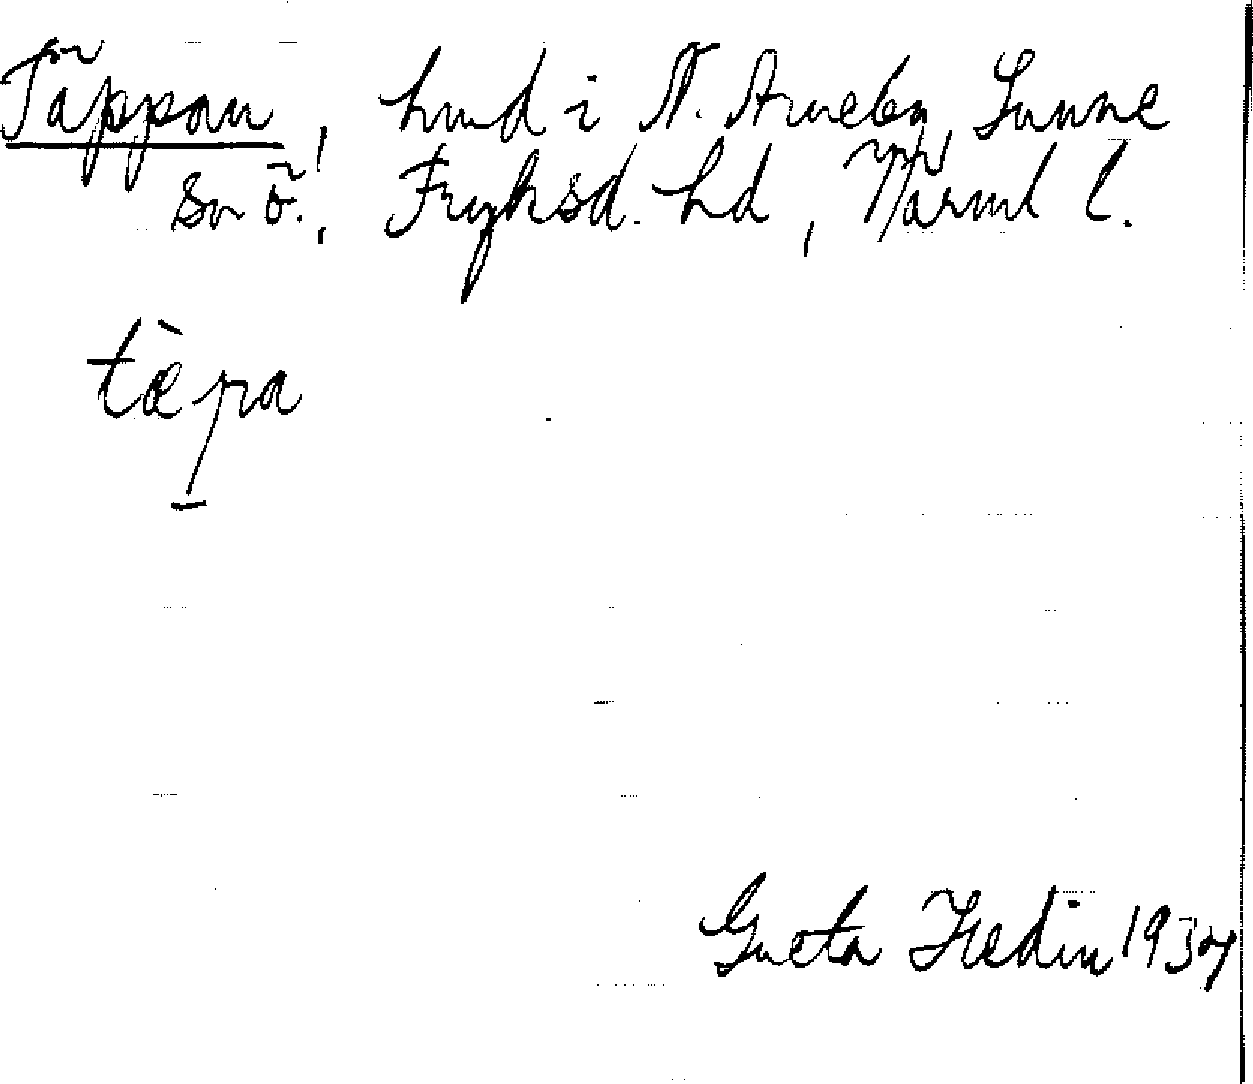 Täppan, hmd i N. Arneby, Sunne
sn ö., Fryksd. hd, Värml l.
tæ̀pa
Greta Hedin 1934